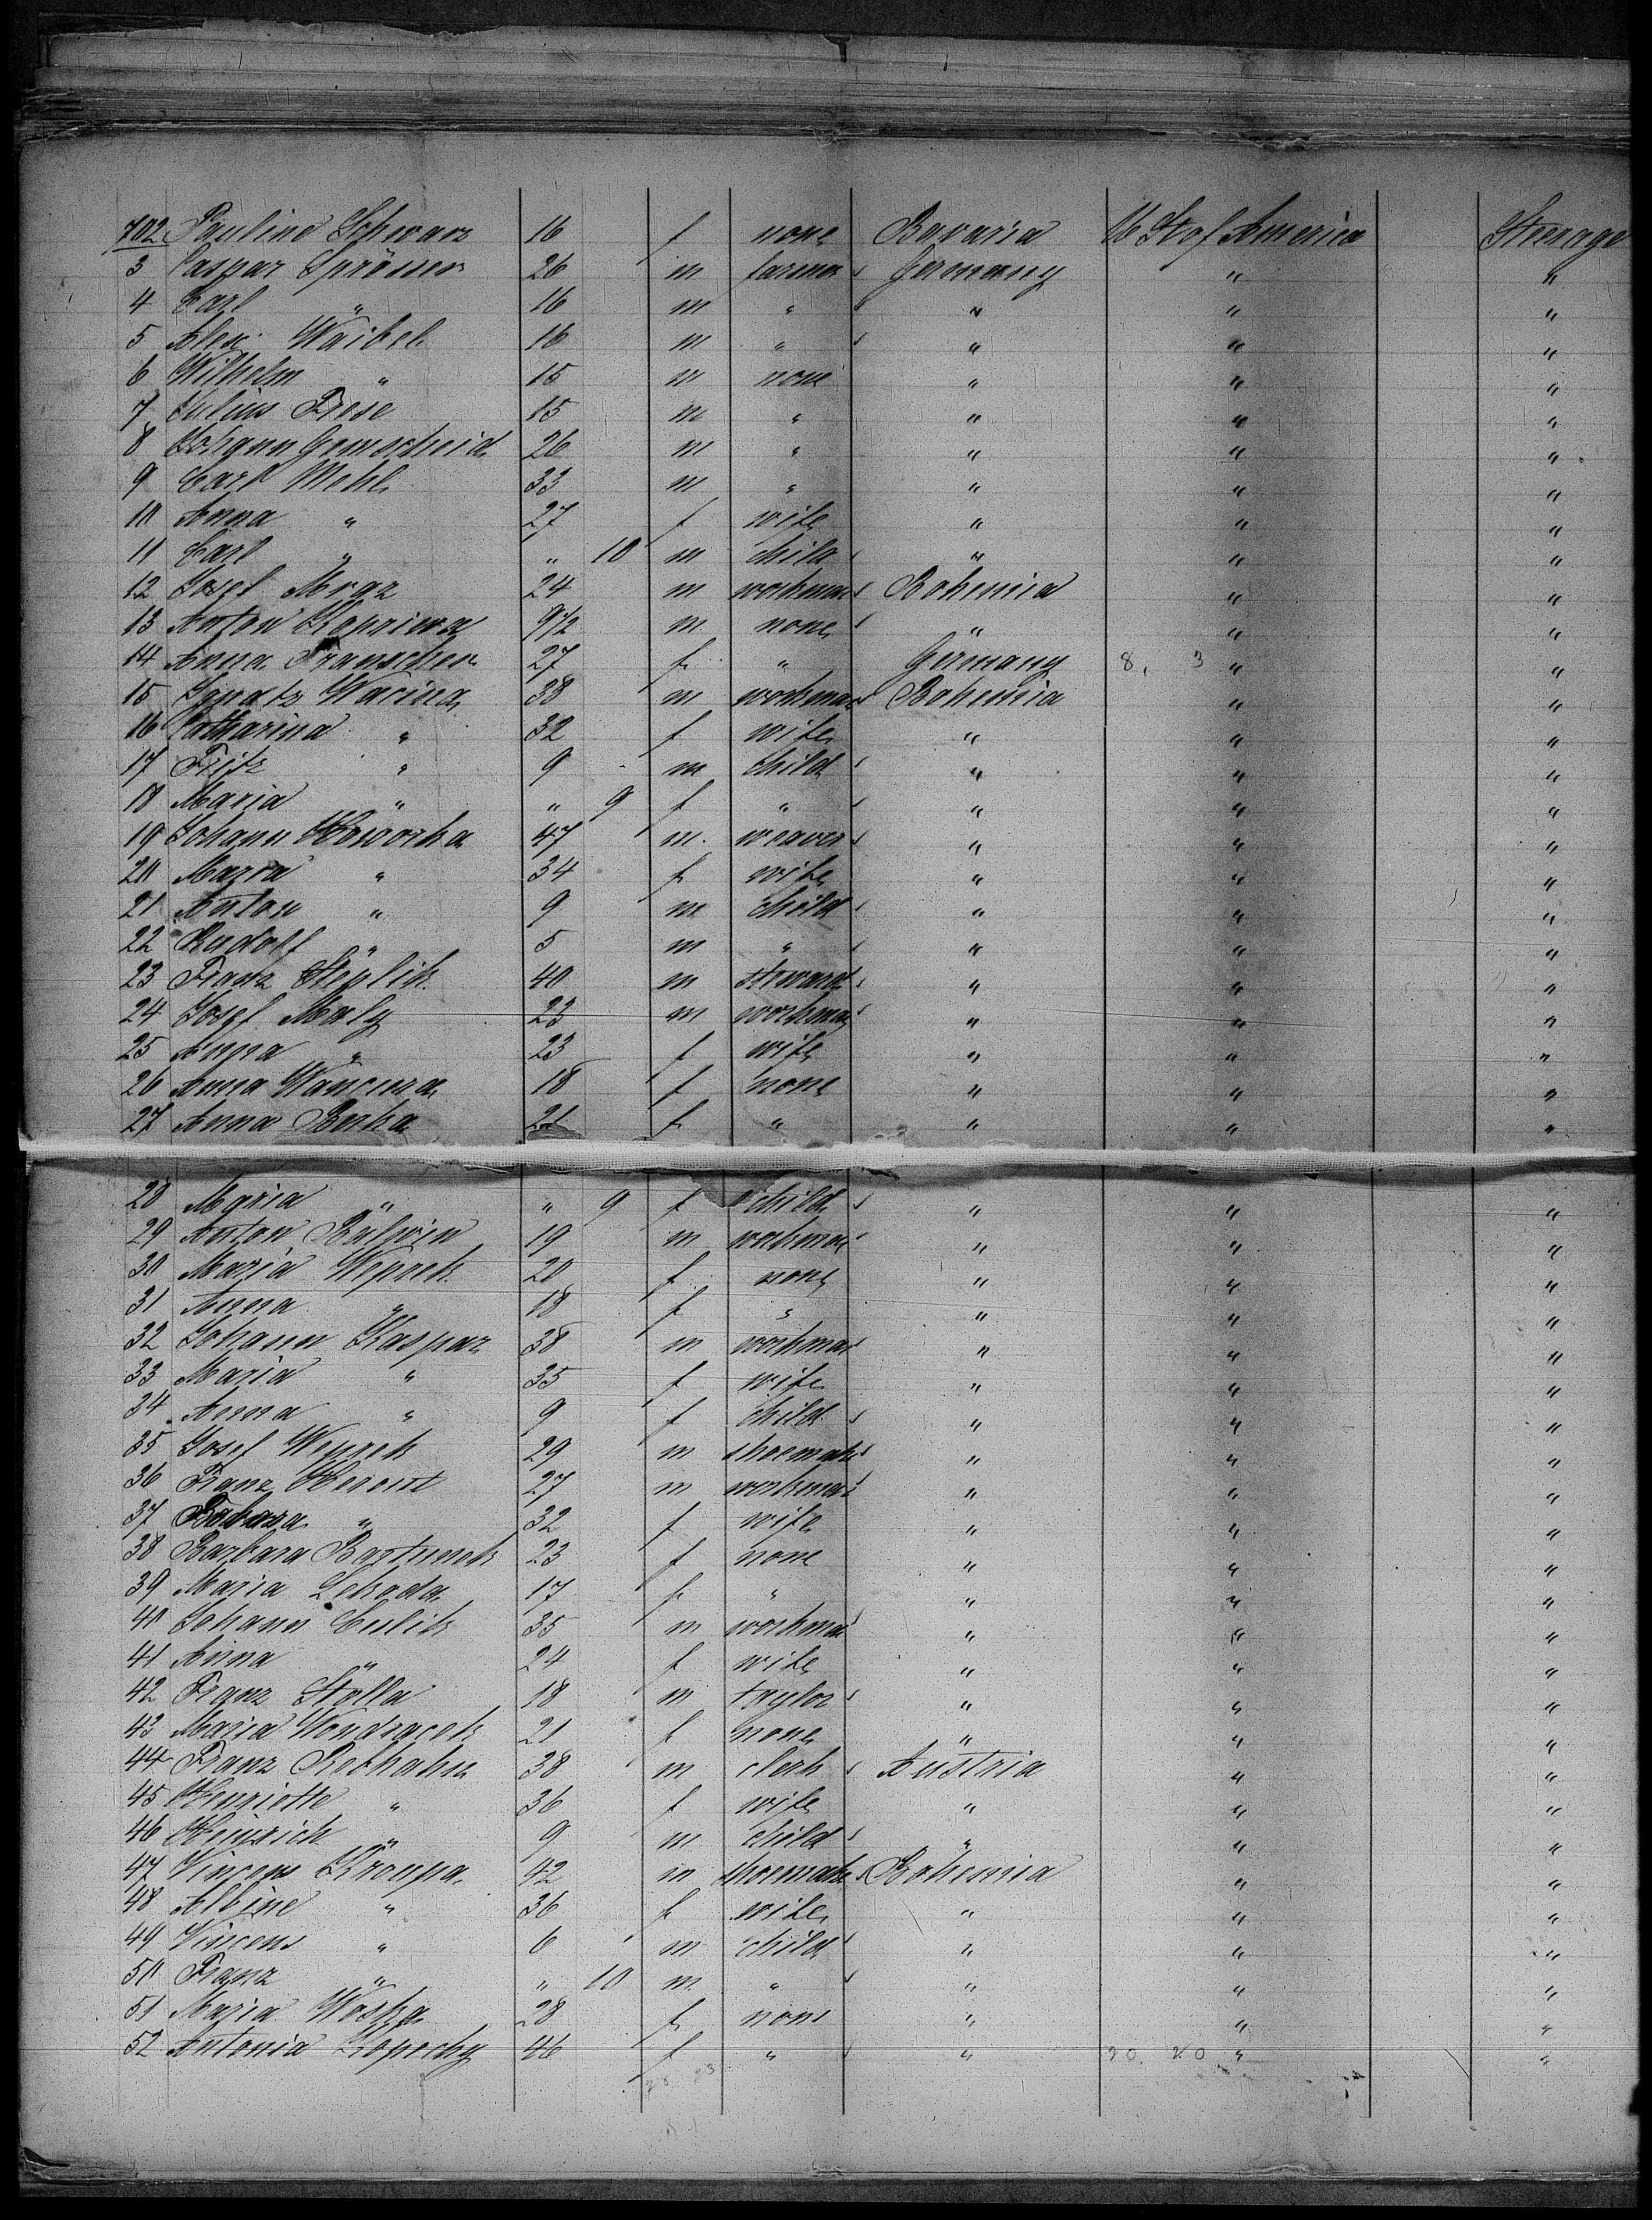 702 Pauline Schwarz 16 f none Bavaria U St of America Steerage
3 Caspar Sprösser 26 m farmer Germany " "
4 Carl " 16 m " " " "
5 Alex. Waibel 16 m " " " "
6 Wilhelm " 15 m none " " "
7 Julius Frese 15 m " " " "
8 Johann Gemscheid 26 m " " " "
9 Carl Mehl 33 m " " " "
10 Anna " 27 f wife " " "
11 Carl " " 10 m child " " "
12 Josef Mraz 24 m workman Bohemia " "
13 Anton Kopriwa 9 1/2 m none " " "
14 Anna Franscher 27 f " Germany 8, 3 " "
15 Ignatz Wacina 38 m workman Bohemia " "
16 Catharina " 32 f wife " " "
17 Fritz " 9 m child " " "
18 Maria " " 9 f " " " "
19 Johann Howorka 47 m weaver " " "
20 Maria " 34 f wife " " "
21 Anton " 9 m child " " "
22 Rudolf " 5 m " " " "
23 Franz Steplik 40 m steward " " "
24 Josef Maly 23 m workman " " "
25 Anna " 23 f wife " " "
26 Anna Wancura 18 f none " " "
27 Anna Berka 21 f " " " "
28 Maria " " 9 f child " " "
29 Anton Balwin 19 m workman " " "
30 Maria Weprek 20 f none " " "
31 Anna " 18 f " " " "
32 Johann Kaspar 38 m workman " " "
33 Maria " 35 f wife " " "
34 Anna " 9 f child " " "
35 Josef Weprek 29 m shoemaker " " "
36 Franz 27 m workman " " "
37 Babara " 32 f wife " " "
38 Barbara Bartunek 23 f none " " "
39 Maria Lehoda 17 f " " " "
40 Johann Culik 35 m workman " " "
41 Anna " 24 f wife " " "
42 Franz Stolla 18 m taylor " " "
43 Maria Wondracek 21 f none " " "
44 Franz Rebhahn 38 m clerk Austria " "
45 Henriette " 36 f wife " " "
46 Heinrich " 9 m child " " "
47 Vincens Kroupa 42 m shoemaker Bohemia " "
48 Albine " 36 f wife " " "
49 Vincens " 6 m child " " "
50 Franz " " 10 m " " " "
51 Maria Woska 28 f none " " "
52 Antonia Kopecky 46 f " " 20. 20 " "